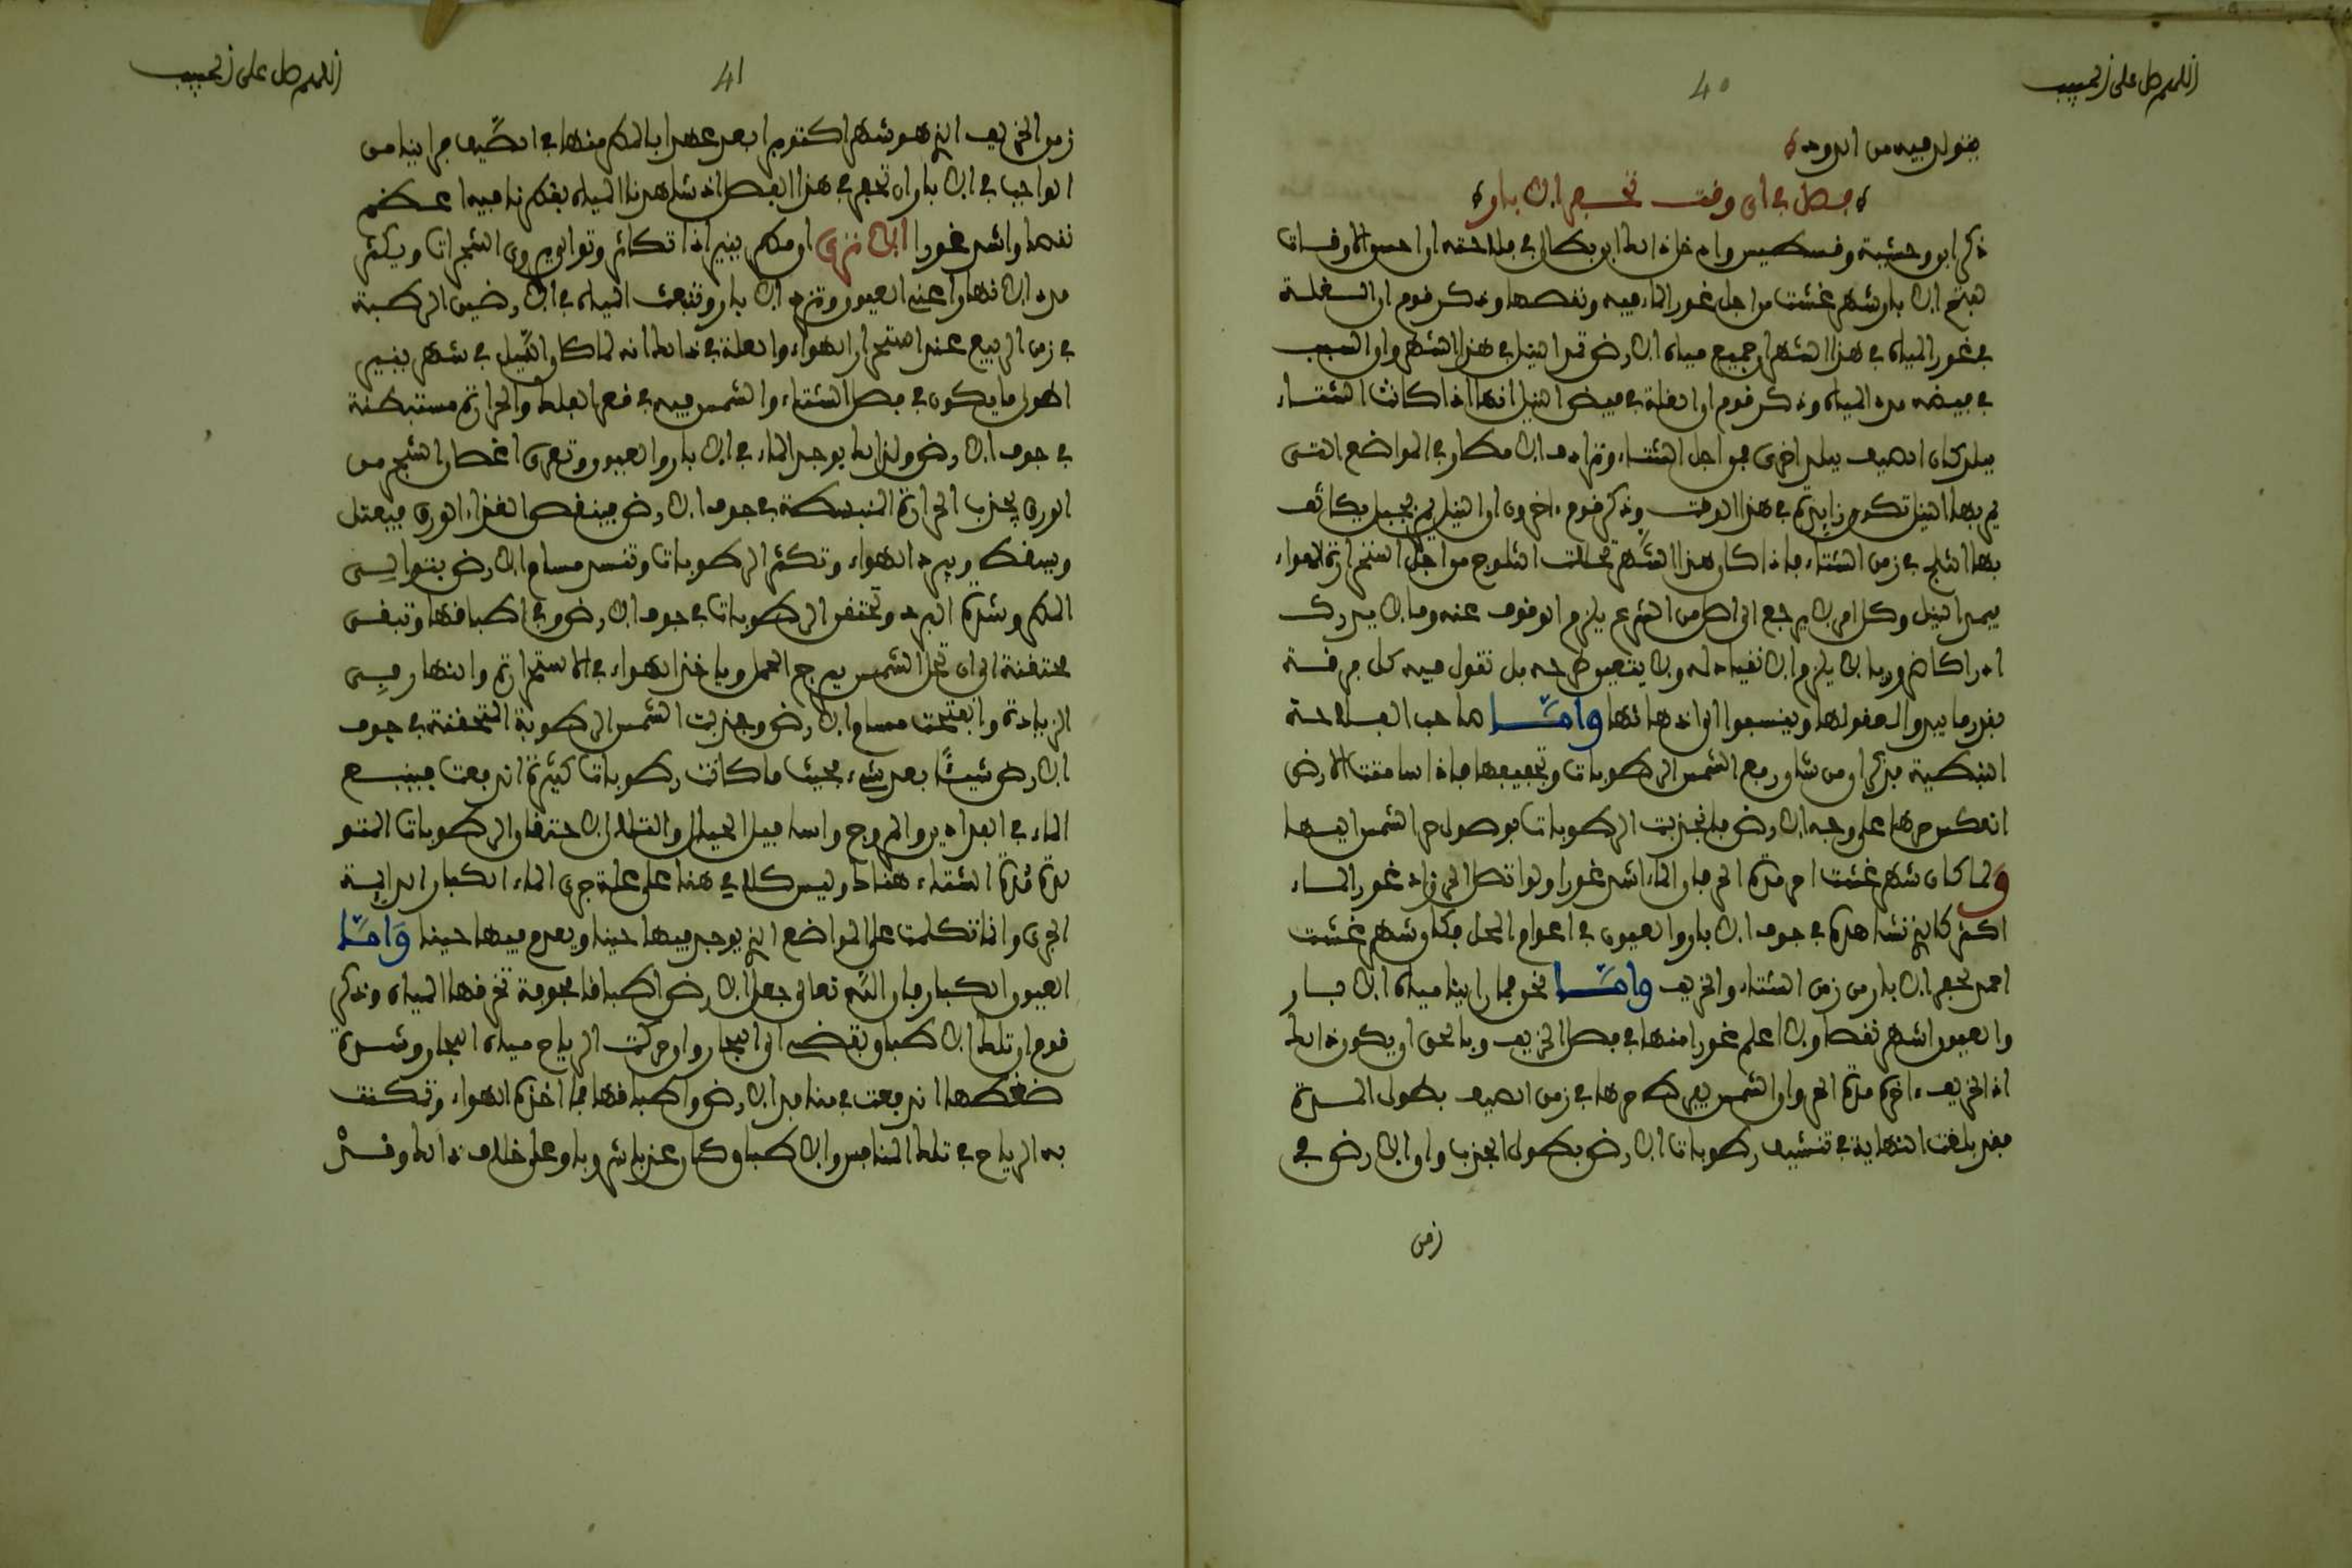 اللهم صل على الحبيب
40
يتولد فيه من الدود
فصل في اي وقت تحفر الابار
ذكر ابن وحشية وقسطيس واد خاذ ابو في فلاحته ان احسن الاوقات
لفتح الابار شهر غشت من اجل غور الماء فيه ونقصها وذكر قوم ان العلة
في غور المياه في هذا الشهر ان جميع مياه الارض تمد النيل في هذا الشهر وان السبب
في فيضه مدد المياه وذكر قوم ان العلة في فيض النيل انها اذا كان الشتاء
ببلد كان الصيف ببلد اخرى فمن اجل الشتاء وترادف الامطار في المواضع التي
يمر بها النيل تكون زايدة في هذا الوقت وذكر قوم ءاخرون ان النيل يمر بجبل يكاثف
بها الثلج في زمن الشتاء فاذا كان هذا الشهر تحللت الثلوج من اجل استحرارة الهواء
فيمد النيل وكل امر لا يرجع الى اصل من الشرع يلزم الوقوف عنده وما لا يدرك
ادراكا ضروريا لا يلزم الانقياد له ولا يتعين طرحه بل تقول فيه كل فرقة
بقدر ما يبدو لعقولها وينسبوا الى اذهانها وامــا صاحب الفلاحة
النبطية فذكر ان من شان رفع الشمس الرطوبات وتجفيفها فاذا سامتت الارض
انعكس حرها على وجه الارض فانجذبت الرطوبات بوصول حر الشمس اليها
ولما كان شهر غشت احر مدة الحر فان الماء اشد غورا ولو اتصل الحر زاد غور الماء
اكثر كالذي نشاهده في جوف الابار والعيون في اعوام المحل فكان شهر غشت
احمد لحفر الابار من زمن الشتاء والخريف وامــا نحن فما راينا مياه الابار
والعيون اشد نقصا ولا اعلم غورا منها في فصل الخريف وبالحق ان يكون ذلك
اذ الخريف ءاخر مدة الحر وان الشمس يفرط حرها في زمن الصيف بطول المدة
فقد بلغت النهاية في تنشيف رطوبات الارض بطول الجذب وان الارض في
زمن
اللهم صل على الحبيب
41
زمن الخريف الذي هو شهر اكتوبر ابعد عهدا بالمطر منها في الصيف فراينا من
الواجب في الابار ان تحفر في هذا الفصل اذ شاهدنا المياه بقطرنا فيه اعظم
نقصا واشد غورا الا ترى ان مطر ينير اذا تكاثر وتوالى يروي الشجرات ويكثر
مدد الانهار وعند العيون وتزيد الابار وتنبعث المياه في الارضين الرطبة
في زمن الربيع عند استحرار الهواء والعلة في ذلك انه لما كان الليل في شهر ينير
اطول ما يكون في فصل الشتاء والشمس فيه في قعر الفلك والحرارة مستبطنة
في جوف الارض ولذلك يوجد الماء في الابار والعيون وتعرى اغصان الشجر من
الورق بجذب الحرارة المنبسطة في جوف الارض فينقص الغذاء الورق فيعتل
ويسقط ويبرد الهواء وتكثر الرطوبات وتنسد مسام الارض بتوالي
المطر وشدة البرد وتحتقن الرطوبات في جوف الارض وفي اطباقها وتبقى
محتقنة الى ان تحل الشمس برج الحمل وياخذ الهواء في الاستحرارة والنهار في
الزيادة وانفتحت مسام الارض وجذبت الشمس الرطوبة المتحقنة في جوف
الارض شيئا بعد شيء بحيث ما كانت رطوبات كثيرة اندفعت فينبع
الماء في الفدادين والمروج واسافيل الجبال والتلال لاحتقان الرطوبات المتو
لدة مدة الشتاء هناك وليس كلامي هذا على علة جري الماء الكبار الدايمة
الجري وانما تكلمت على المواضع الذي يوجد فيها حينا ويعدم فيها حينا وامــا
العيون الكبار فان الله تعالى جعل الارض اطباقا مجوفة تخرقها المياه وذكر
قوم ان تلك الاطباق تفضي الى البحار وان حركت الرياح مياه البحار وشدة
ضغطها اندفعت في منافد الارض واطباقها فما اخذه الهواء وتمكنت
به الرياح في تلك المنافس والاطباق وكان عذبا شروبا وعلى خلاف ذلك وقدْ